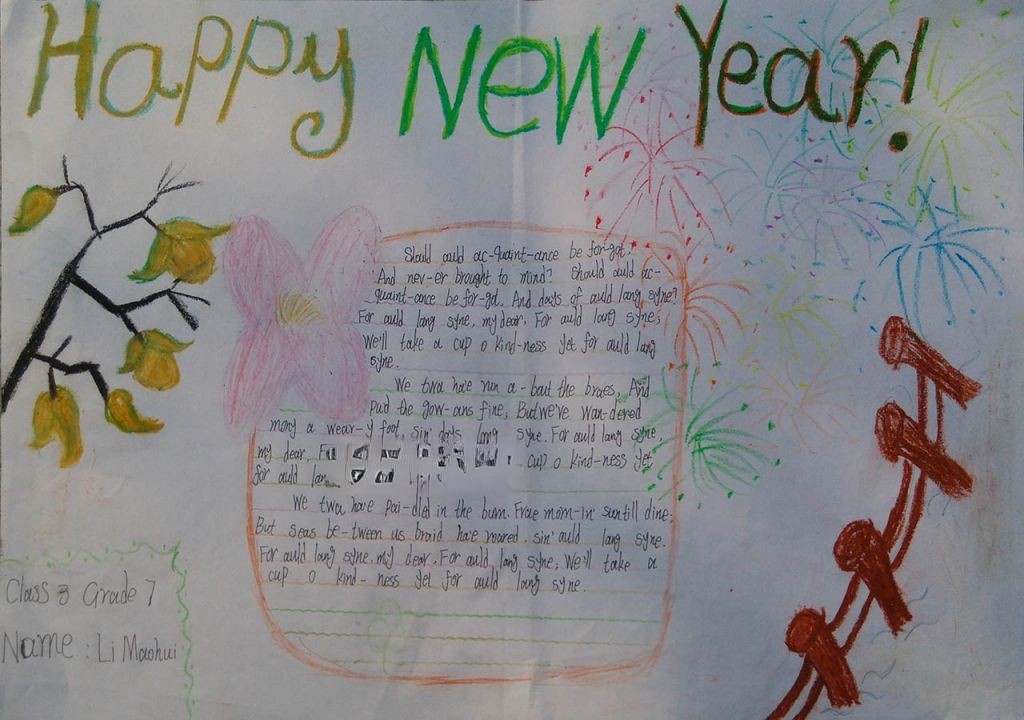 Happy New Year!
Should auld ac-quaint-ance be for-got.
And nev-er brought to mind? Should auld ac-
quaint-ance be for-got. And days of auld lang syne?
For auld lang syne, my dear, For auld lang syne;
We'll take a cup o kind-ness yet for auld lang
syne.
We twa have run a-bout the braes, And
pu'd the gow-ans fine, But we've wan-dered
many a wear-y foot, sin' days lang syne. For auld lang syne,
my dear, cup o kind-ness yet
for auld
We twa have pai-dled in the burn. Frae morn-in' sun till dine;
But seas be-tween us braid have roared. sin' auld lang syne.
For auld lang syne, my dear. For auld lang syne; We'll take a
cup o kind-ness yet for auld lang syne.
Class 3 Grade 7
Name: Li Maohui